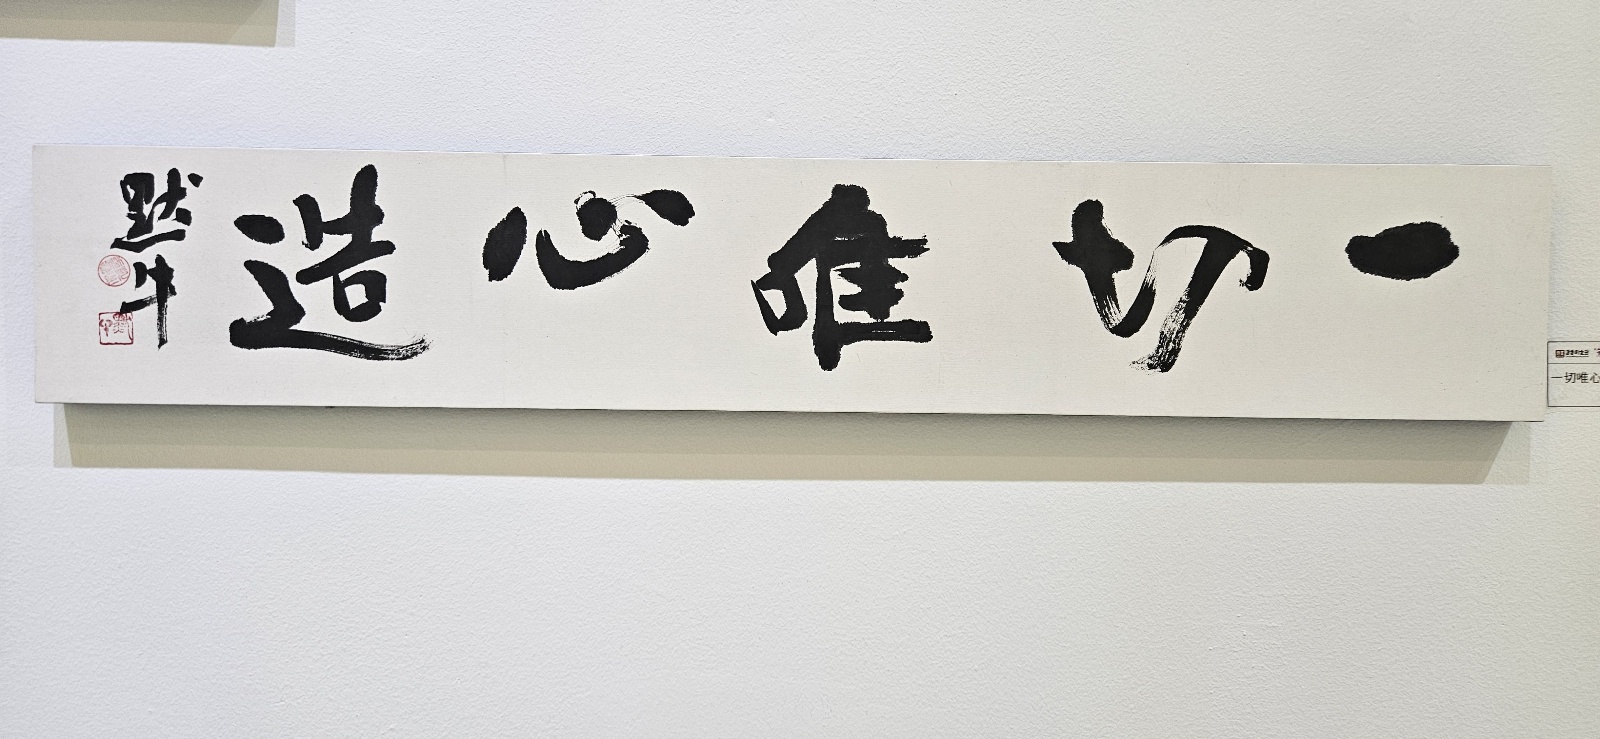 一切唯心造
默牛
一切唯心